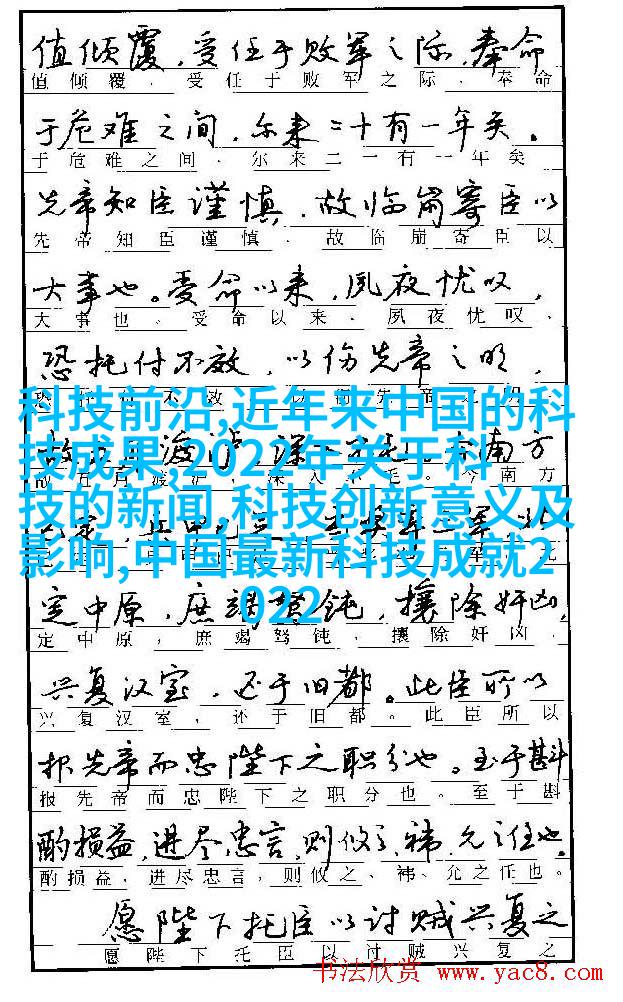 值倾覆，受任于败军之际，奉命
值倾覆，受任于败军之际，奉命
于危难之间，尔来二十有一年矣。
于危难之间，尔来二一有一年矣
先帝知臣谨慎，故临崩寄臣以
先帝知臣谨慎，故临崩寄臣以
大事也。受命以来，夙夜忧叹，
大事也。受命以来，夙夜忧叹，
恐托付不效，以伤先帝之明，
科技前沿,近年来中国的科
技成果,2022年关于科
技的新闻,科技创新意义及
影响,中国最新科技成就2
022
南方
故五月渡泸，深入不毛。今南方
定中原，庶竭驽钝，攘除奸凶，
定中原，庶竭驽钝，攘除奸凶，
兴复汉室，还于旧都。此臣所以
兴复汉室，还于旧都。此臣所以
报先帝而忠陛下之职分也。至于斟
报先帝而忠陛下之职分也。至于斟
酌损益，进尽忠言，则攸之、祎、允之任也。
酌损益，进尽忠言，则攸之、祎、允之任也。
愿陛下托臣以讨贼兴复之
愿陛下托臣以讨贼兴复之
书法欣赏 www.yac8.com